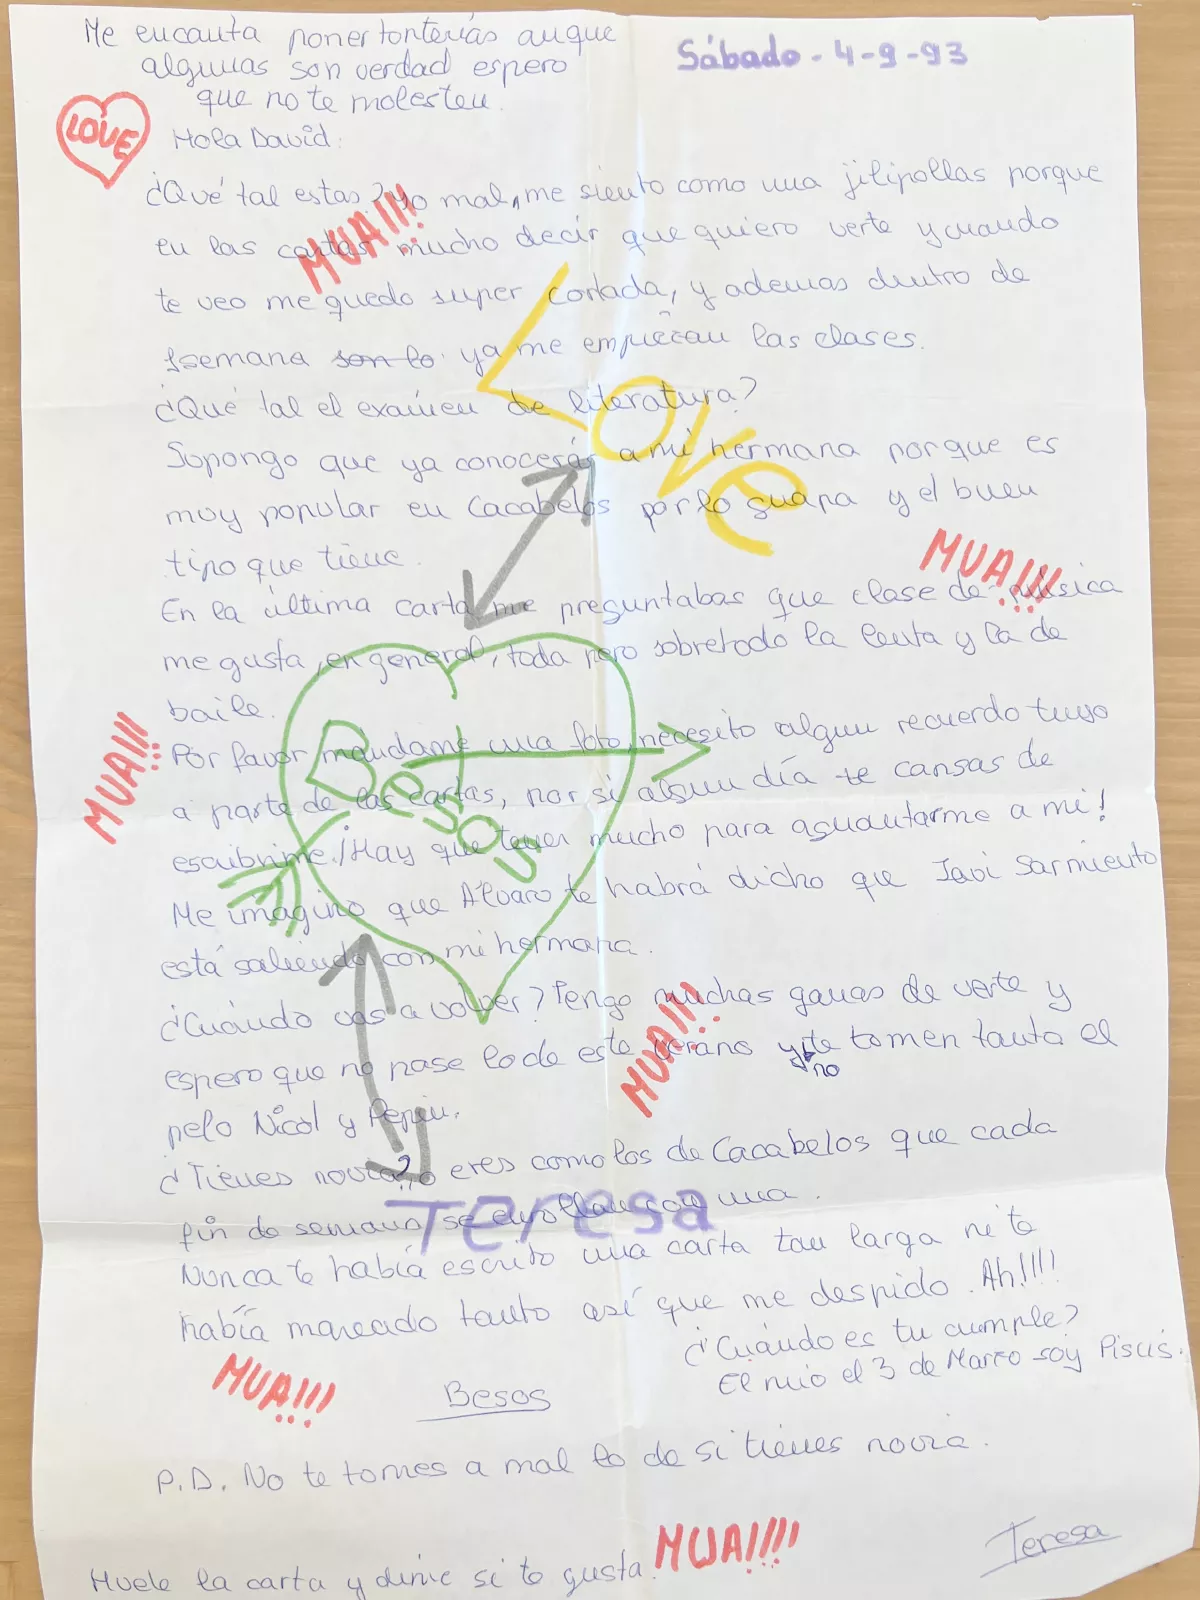 Me encanta poner tonterías auque
algunas son verdad espero
que no te molesten.
Sábado - 4-9-93
LOVE
Hola David:
¿Qué tal estas? Yo mal, me siento como una jilipollas porque
en las cartas mucho decir que quiero verte y cuando
te veo me quedo super cortada, y ademas dentro de
1 semana son lo ya me empiezan las clases.
¿Qué tal el exámen de literatura?
Sopongo que ya conocerás a mi hermana porque es
muy popular en Cacabelos por lo guapa y el buen
tipo que tiene.
En la última carta me preguntabas que clase de música
me gusta, en general, toda pero sobretodo la lenta y la de
baile.
Por favor mandame una foto, necesito algun recuerdo tuyo
a parte de las cartas, por si algun día te cansas de
escibrirme. ¡Hay que tener mucho para aguantarme a mi!
Me imagino que Álvaro te habrá dicho que Javi Sarmiento
está saliendo con mi hermana.
¿Cuándo vas a volver? Tengo muchas ganas de verte y
espero que no pase lo de este verano y te tomen tanto el
no
pelo Nicol y Pepin.
¿Tienes novia? o eres como los de Cacabelos que cada
fin de semana se enrollan con una.
Nunca te había escrito una carta tan larga ni te
había mareado tanto así que me despido. Ah!!!!
¿Cuándo es tu cumple?
El mio el 3 de Marzo soy Piscis.
Besos
P.D. No te tomes a mal lo de si tienes novia.
Teresa
Huele la carta y dime si te gusta.
MUA!!!
Love
MUA!!!
MUA!!!
Besos
MUA!!!
Teresa
MUA!!!
MUA!!!!